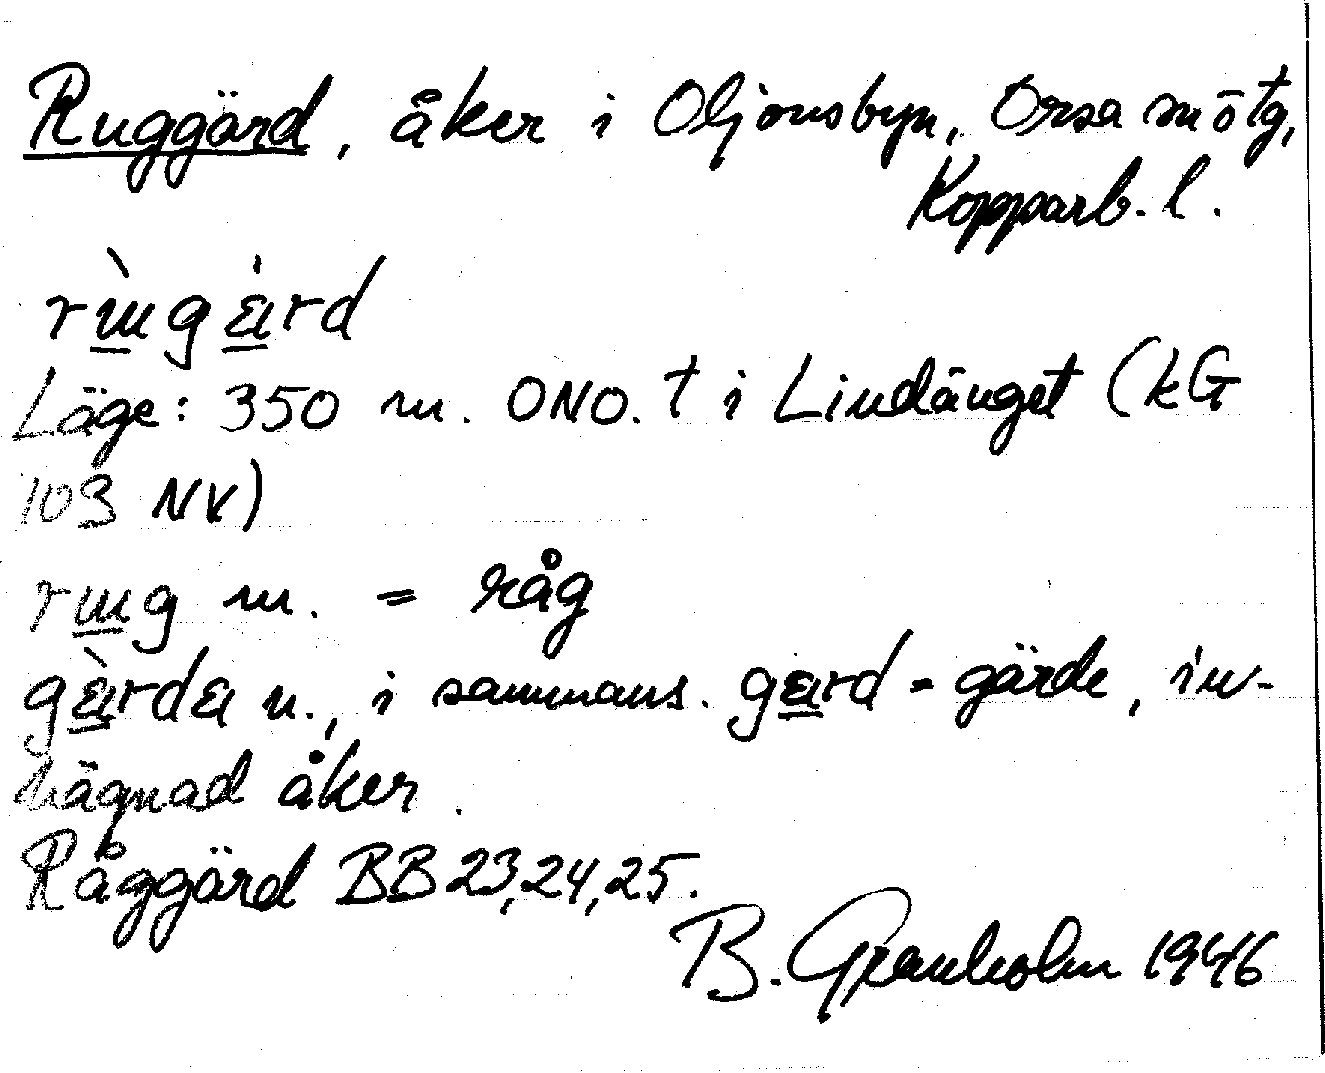 Ruggärd, åker i Oljonsbyn, Orsa snötg,
Kopparb. l.
Läge: 350 m. ONO. t i Lindänget (kG
103 NV)
m. = råg
n., i sammans. = gärde, in-
hägnad åker.
Råggärd BB 23, 24, 25.
B. Granholm 1946